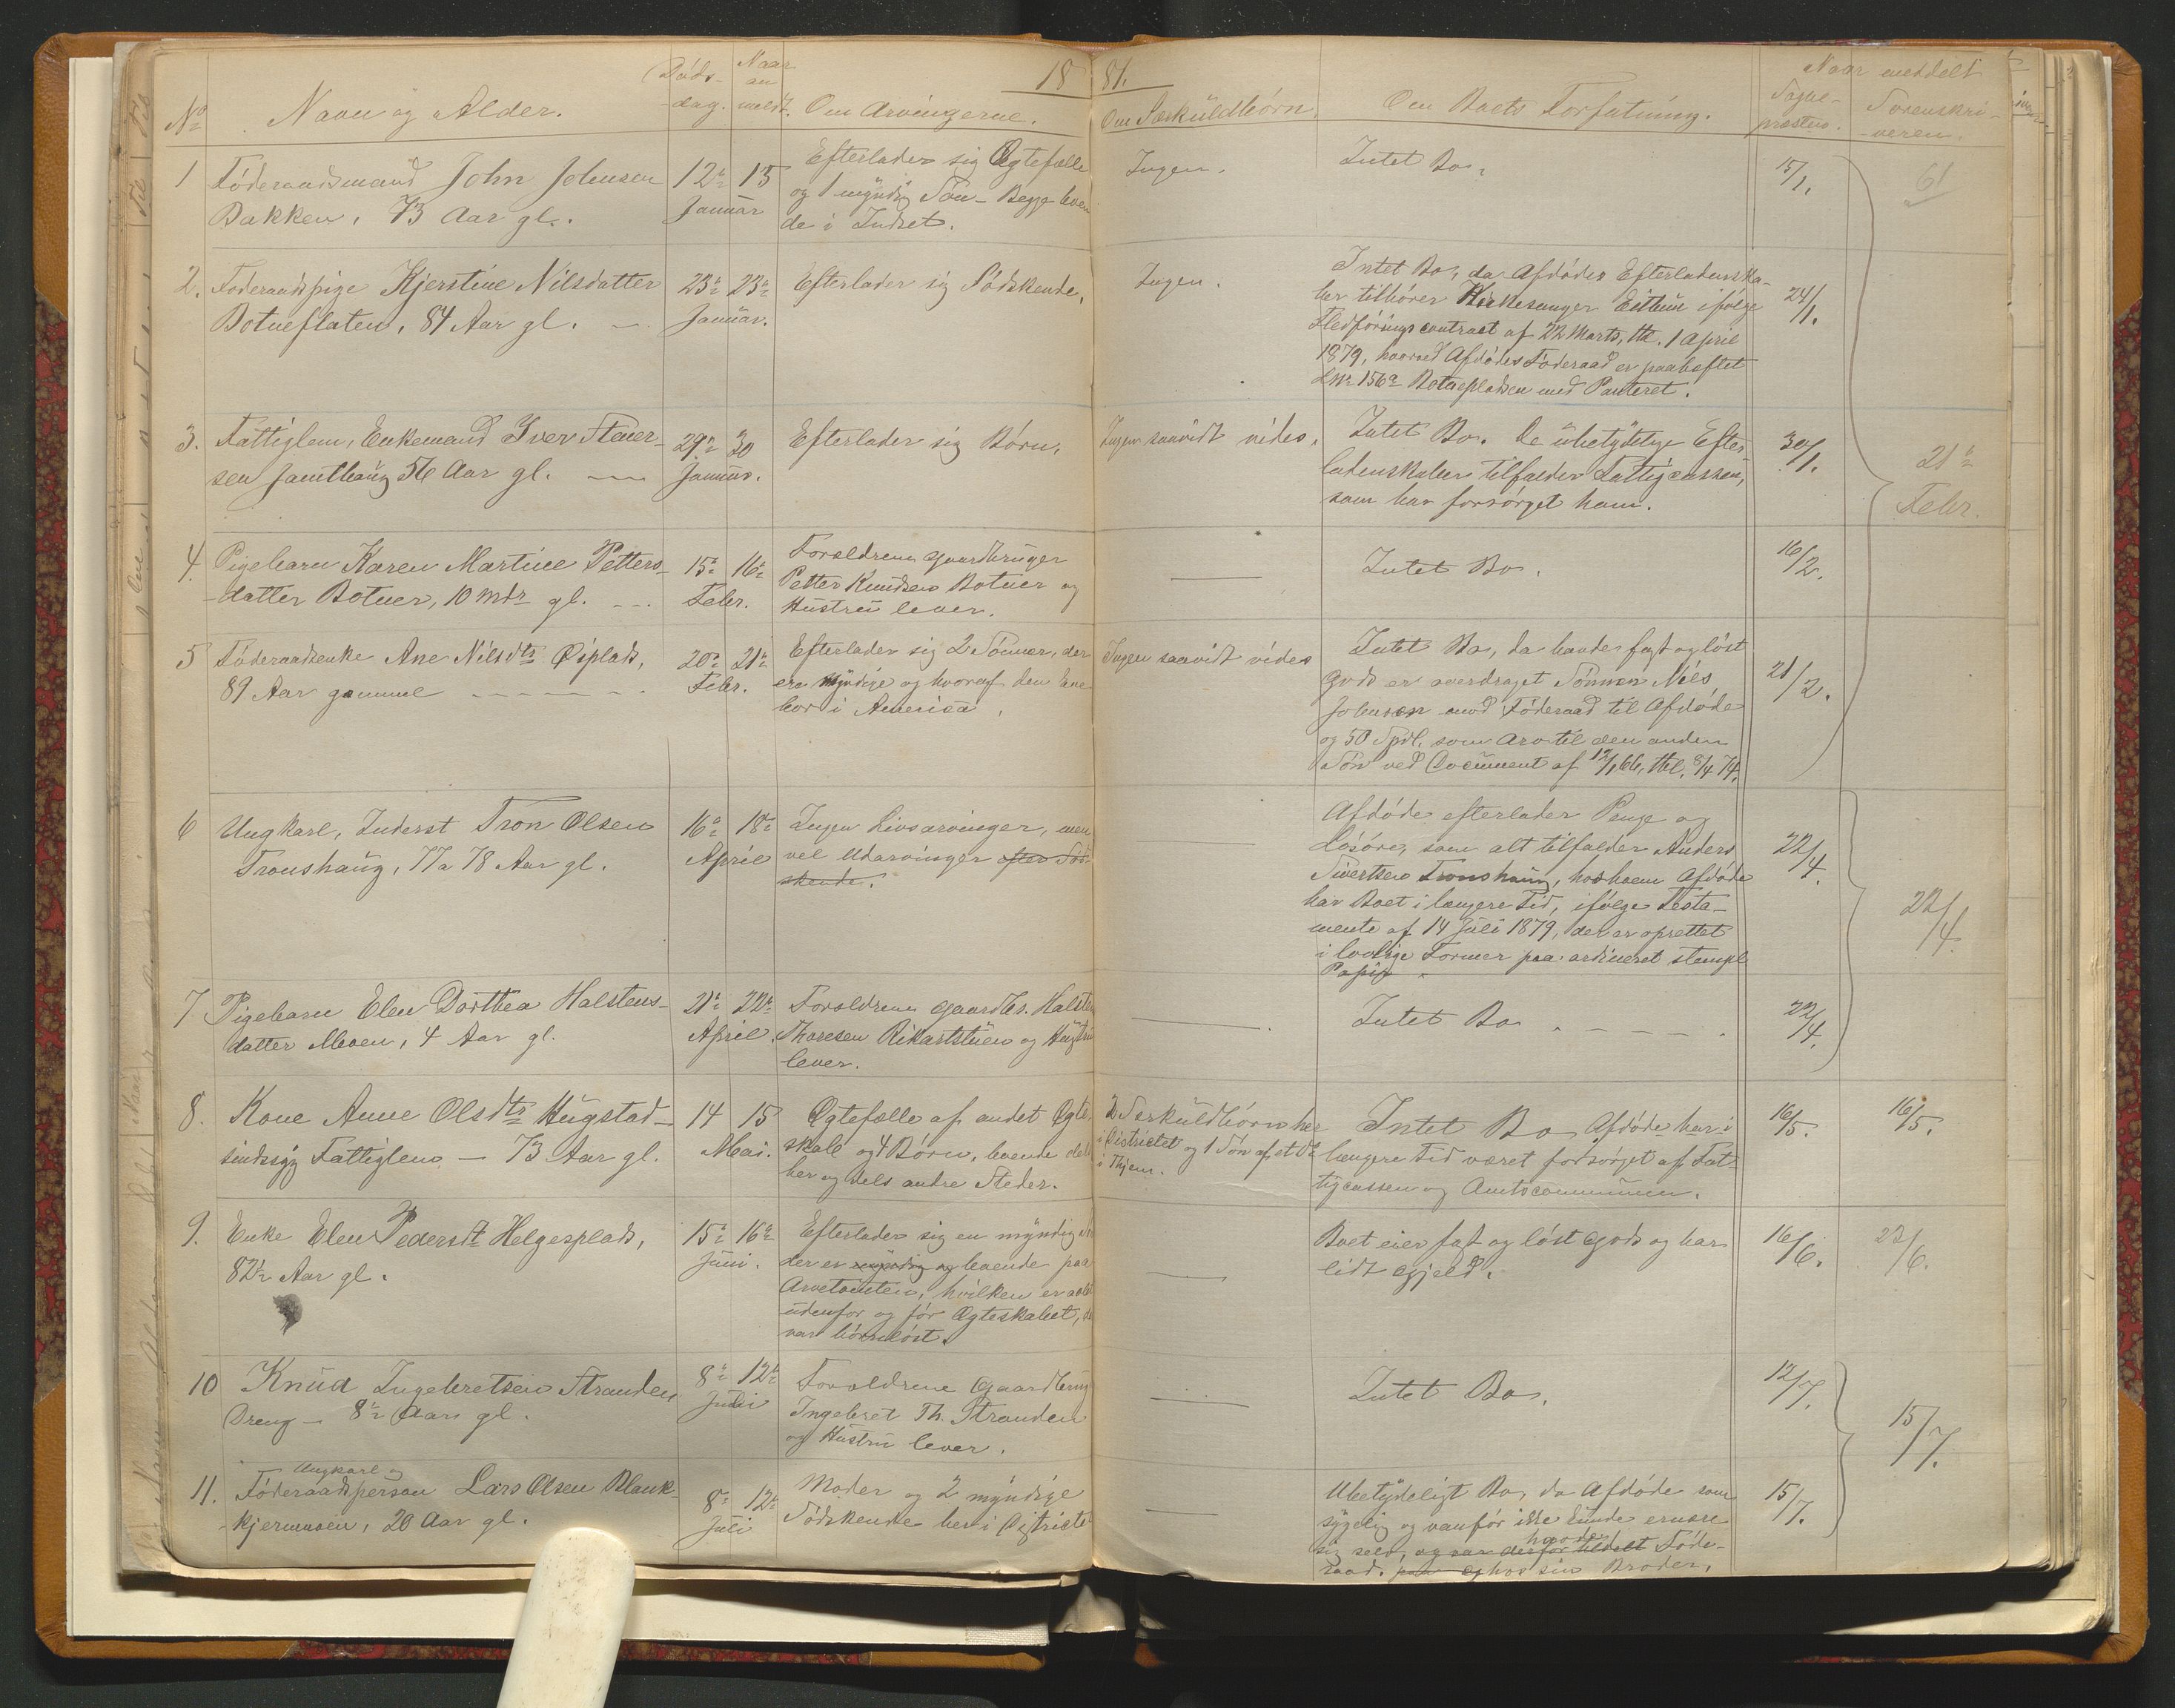 1881.
No Navn og Alder. Døds-dag. Naar anmeldt. Om Arvingerne. Om Særkuldbørn. Om Boets Forfatning. Naar meddelt Sognepræsten. Sorenskriveren.
1 Føderaadsmand John Johnsen
Bakken, 73 Aar gl.
12te 13
Januar
Efterlader sig Ægtefælle
og 1 myndig Søn - Begge leven
de i Indset.
Ingen.
Intet Bo.
15/1.
61
2. Føderaadspige Kjerstine Nilsdatter
Botneflaten, 84 Aar gl.
23de 23de
Januar.
Efterlader sig Södskende.
Ingen.
Intet Bo, da Afdødes Efterladenska-
ber tilhører Kirkesanger Eithun ifølge
Fledføringscontract af 22 Marts, thl. 1 April
1879, hvorved Afdødes Föderaad er paaheftet
LNr 156a Botnepladsen med Panteret.
24/1.
3. Fattiglem, Enkemand Iver Stener-
sen Jamthaug 56 Aar gl.
29de 30
Januar.
Efterlader sig Børn.
Ingen saavidt vides.
Intet Bo. De ubetydelige Efter-
ladenskaber tilfalder Fattigcassen,
som har forsørget ham.
30/1.
21de
Febr.
4. Pigebarn Karen Martine Petters-
datter Botner, 10 mdr gl.
15de 16de
Febr.
Forældrene Gaardbruger
Petter Knudsen Botner og
Hustru lever.
Intet Bo.
16/2.
5 Føderaadsenke Ane Nilsdtr Øiplads,
89 Aar gammel
20de 21de
Febr.
Efterlader sig 2 Sønner, der
ere myndige og hvoraf den Ene
bor i America.
Ingen saavidt vides
Intet Bo, da hendes fast og løst
Gods er overdraget Sönnen Nils
Johnsen mod Föderaad til Afdøde
og 50 Spdl. som Arv til den anden
Søn ved Document af 12/1 66, thl. 8/4 74.
21/2.
6 Ungkarl, Inderst Tron Olsen
Tronshaug, 77 a 78 Aar gl.
16de 18de
April
Ingen Livsarvinger, men
vel Udarvinger efter Sød-
skende.
Afdøde efterlader Penge og
Løsøre, som alt tilfalder Anders
Sivertsen Tronshaug, hos hvem Afdøde
har Boet i længere Tid, ifølge Testa-
mente af 14 Juli 1879, der er oprettet
i lovlige Former paa ordineret stempl
Papir
22/4.
22/4.
7 Pigebarn Elen Dorthea Halstens-
datter Moen, 4 Aar gl.
21de 22de
April.
Forældrene Gaardbr. Halsten
Thoresen Rikartstuen og Hustru
lever.
Intet Bo
22/4.
8. Kone Anne Olsdtr Hugstad -
sindssyg Fattiglem - 73 Aar gl.
14 15
Mai.
Ægtefælle af andet Ægte-
skab og 4 Børn, levende dels
her og dels andre Steder.
2 Særkuldbørn her
i Districtet og 1 Søn af et do
i Thjem.
Intet Bo Afdøde har i
længere Tid været forsørget af Fat-
tigcassen og Amtscommunen.
16/5.
16/5.
9. Enke Elen Pedersdt Helgesplads,
82½ Aar gl.
15de 16de
Juni.
Efterlader sig en myndig
der er myndig og levende paa
Arvetomten, hvilken er avlet
udenfor og før Ægteskabet,
var børnløst.
Boet eier fast og löst Gods og har
lidt Gjeld.
16/6.
22/6.
10 Knud Ingebretsen Stranden,
Dreng - 8½ Aar gl.
8de 12te
Juli
Forældrene Gaardbrug
Ingebret Th. Stranden
og Hustru lever.
Intet Bo.
12/7.
15/7.
11. Ungkarl og
Føderaadsperson Lars Olsen Blank-
kjernmoen, 20 Aar gl.
8de 12te
Juli
Moder og 2 myndige
Södskende her i Districte
Ubetydeligt Bo, da Afdøde som
sygelig og vanför ikke kunde ernære
sig selv, og var derfor tildelt havde Føde-
raad. hos sin Broder.
15/7.